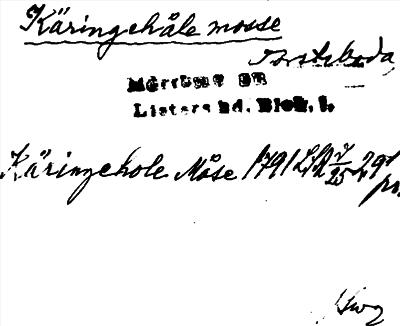 Käringehåle mosse
Torstaboda
Mörrums sn
Listers hd. Blek. l.
Käringehole Måse 1791 LSA 7/25 29¹